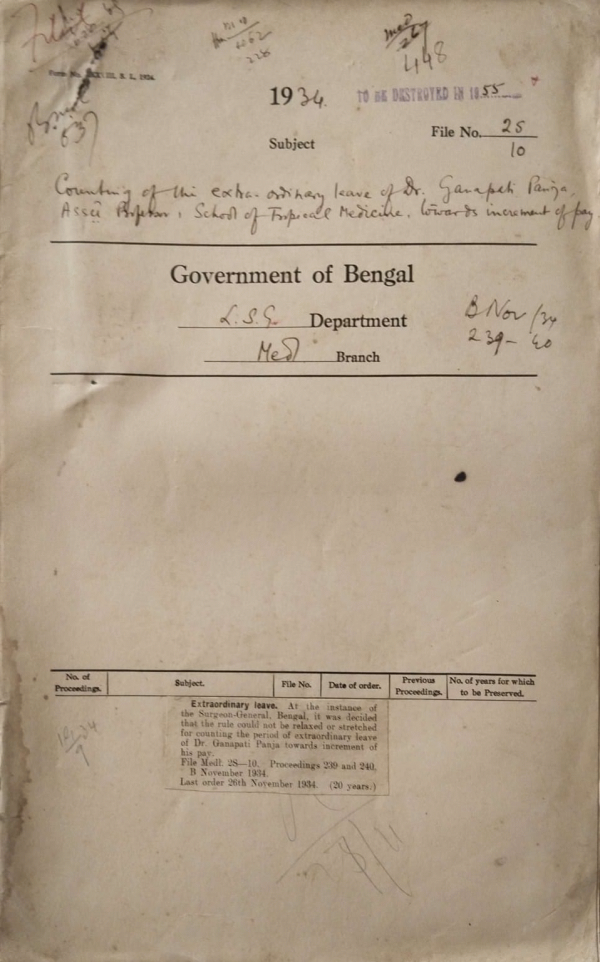 1934
TO BE DESTROYED IN 1955
448
File No. 25
10
Subject
Counting of the extra-ordinary leave of Dr. Ganapati Panja,
Asst Professor, School of Tropical Medicine, towards increment of pay
Government of Bengal
L.S.G. Department
Medl Branch
B Nov/34
239-40
No. of Proceedings.
Subject.
File No.
Date of order.
Previous Proceedings.
No. of years for which to be Preserved.
Extraordinary leave. At the instance of
the Surgeon-General, Bengal, it was decided
that the rule could not be relaxed or stretched
for counting the period of extraordinary leave
of Dr. Ganapati Panja towards increment of
his pay.
File Medl. 2S—10. Proceedings 239 and 240,
B November 1934.
Last order 26th November 1934. (20 years.)